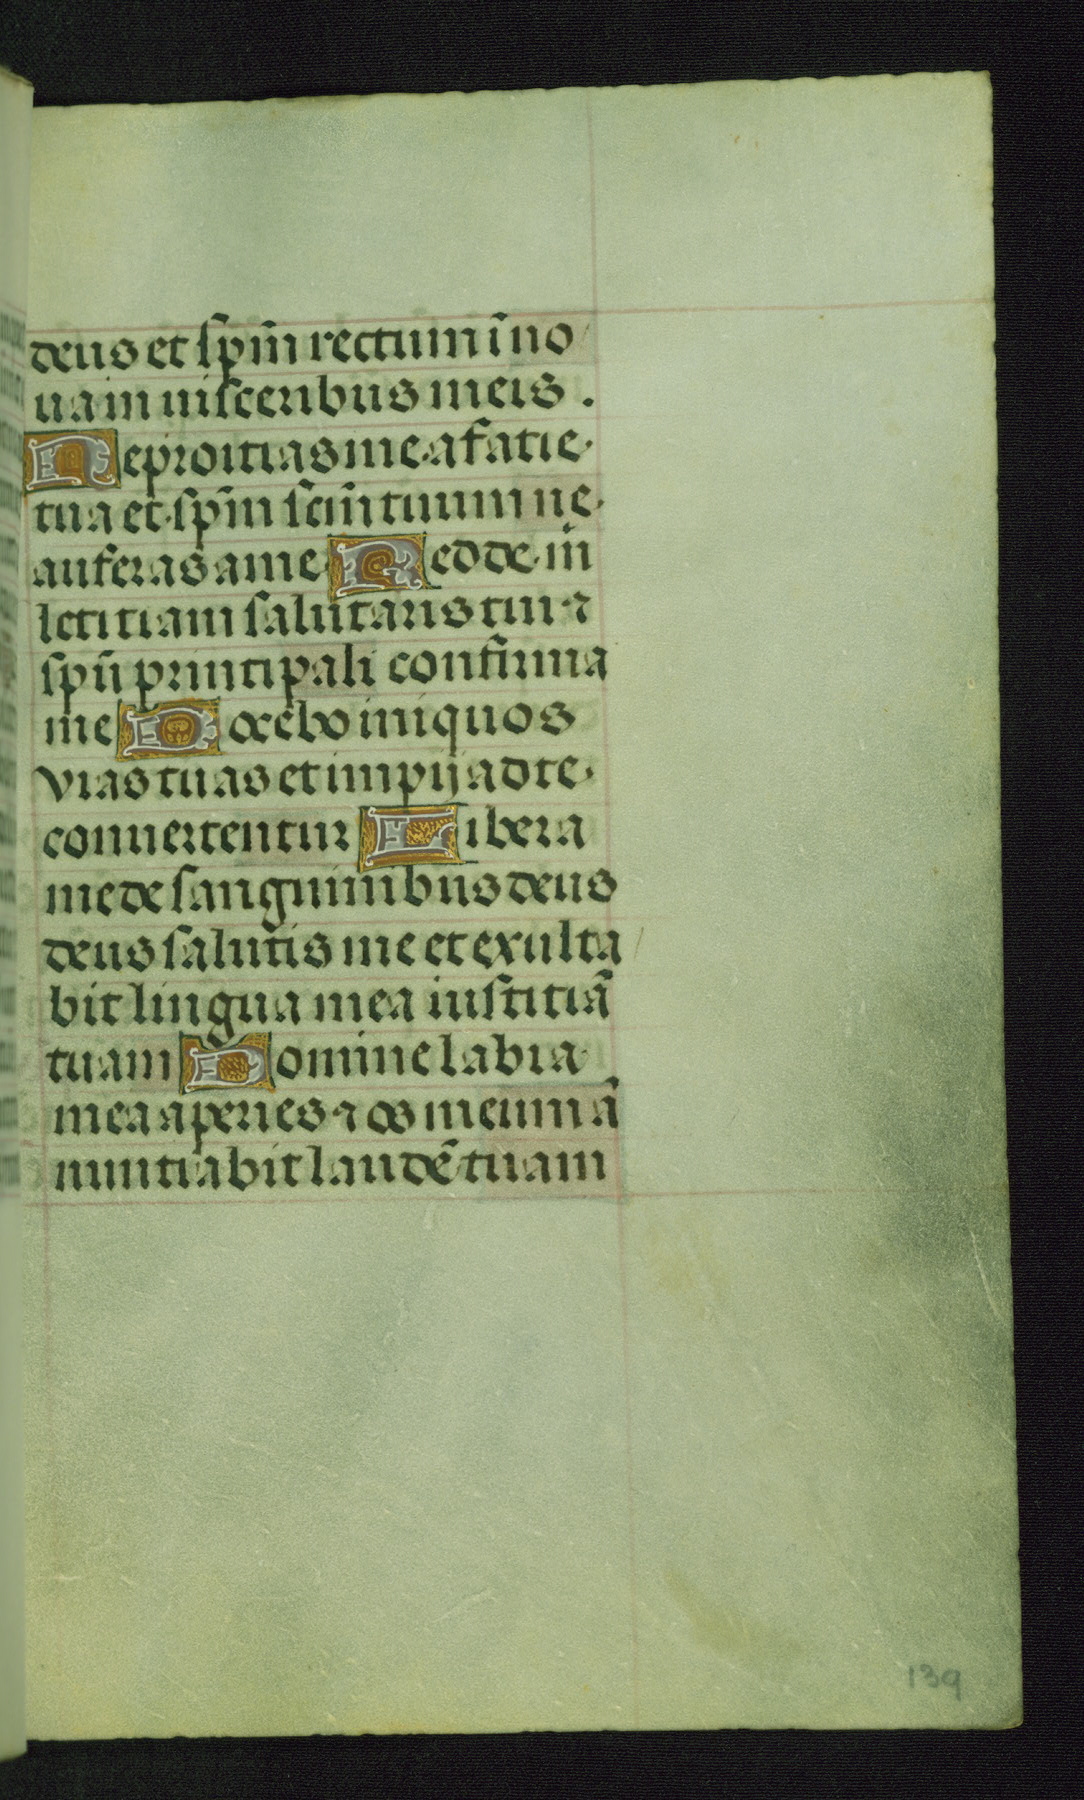 deus et sp̄m rectum īno
ua in uisceribus meis .
Ne proitias me a fatie
tua et sp̄m sc̄m tuum ne
auferas a me Redde in
letitiam salutaris tui ⁊
sp̄u principali confirma
me Docebo iniquos
vias tuas et impij ad te
conuertentur Libera
me de sanguinibus deus
deus salutis me et exulta
bit lingua mea iustitiā
tuam Domine labia
mea aperies ⁊ os meum ā
nuntiabit laudē tuam
139